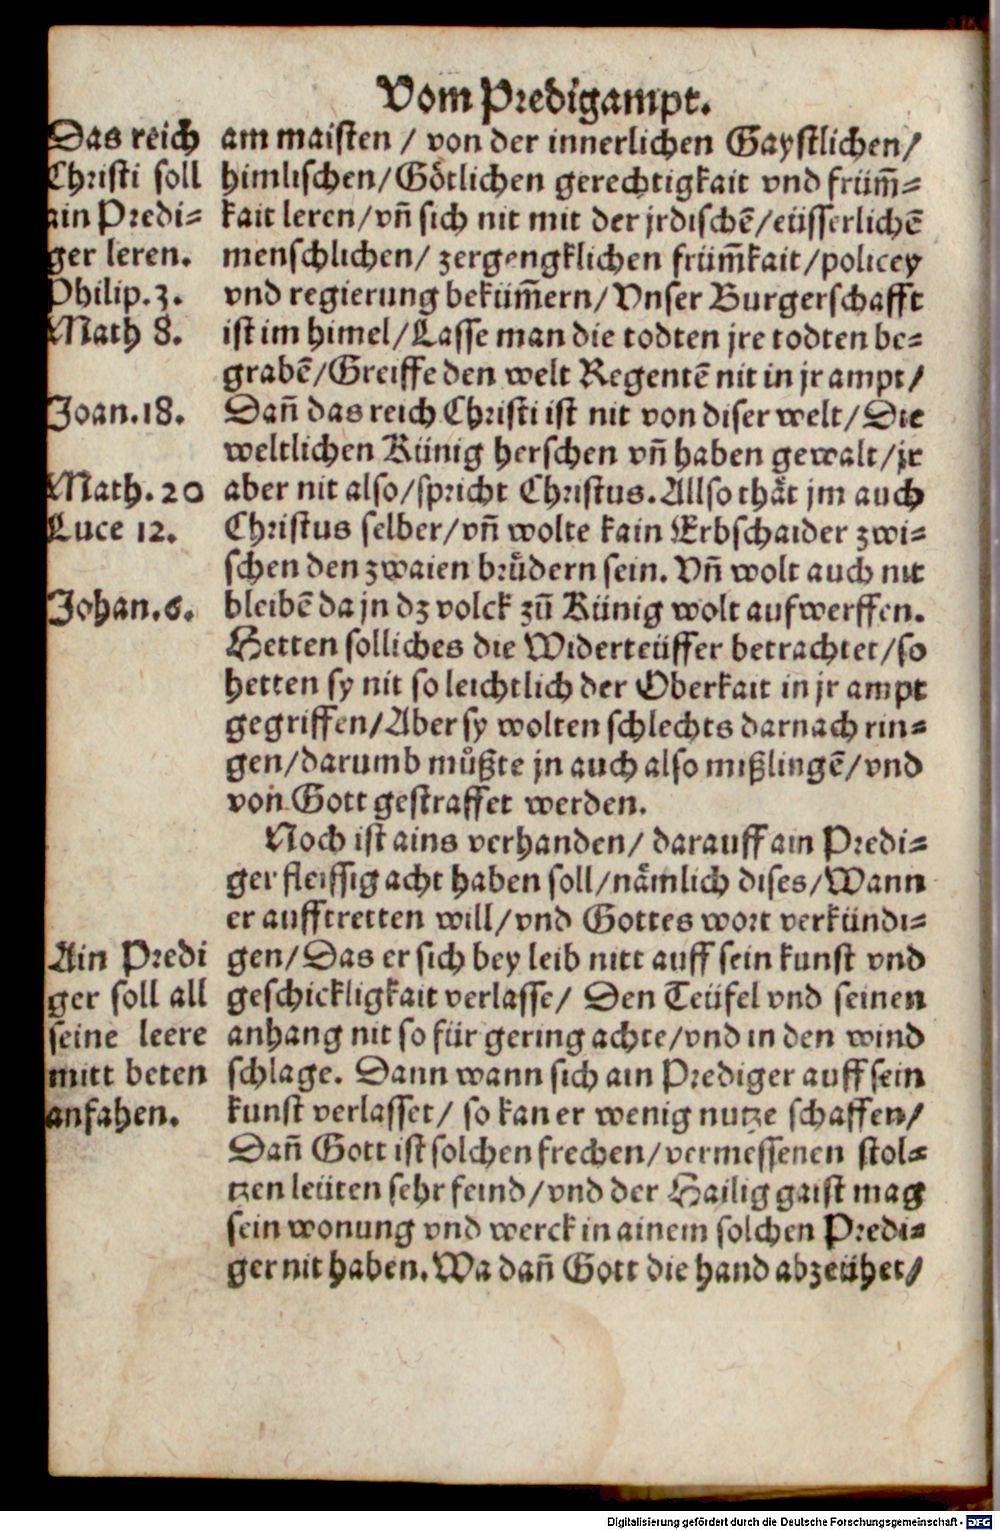 Vom Predigampt.
Das reich
Christi soll
ain Predi=
ger leren.
Philip.3.
Math 8.
Joan.18.
Math. 20
Luce 12.
Johan.6.
am maisten / von der innerlichen Gaystlichen/
himlischen/Götlichen gerechtigkait vnd früm̃=
kait leren/vñ sich nit mit der jrdischẽ/eüsserlichẽ
menschlichen/ zergengklichen früm̃kait/policey
vnd regierung beküm̃ern/Vnser Burgerschafft
ist im himel/Lasse man die todten jre todten be=
grabẽ/Greiffe den welt Regentẽ nit in jr ampt/
Dañ das reich Christi ist nit von diser welt/Die
weltlichen Künig herschen vñ haben gewalt/jr
aber nit also/spricht Christus.Allso thaͤt jm auch
Christus selber/vñ wolte kain Erbschaider zwi=
schen den zwaien bruͤdern sein. Vñ wolt auch nit
bleibẽ da jn dz volck zuͦ Künig wolt aufwerffen.
Hetten solliches die Widerteüffer betrachtet/so
hetten sy nit so leichtlich der Oberkait in jr ampt
gegriffen/Aber sy wolten schlechts darnach rin=
gen/darumb muͦßte jn auch also mißlingẽ/vnd
von Gott gestraffet werden.
Noch ist ains verhanden/ darauff ain Predi=
ger fleissig acht haben soll/naͤmlich dises/Wann
er aufftretten will/vnd Gottes wort verkündi=
gen/Das er sich bey leib nitt auff sein kunst vnd
geschickligkait verlasse/ Den Teüfel vnd seinen
anhang nit so für gering achte/vnd in den wind
schlage. Dann wann sich ain Prediger auff sein
kunst verlasset/ so kan er wenig nutze schaffen/
Dañ Gott ist solchen frechen/vermessenen stol=
tzen leüten sehr feind/vnd der Hailig gaist mag
sein wonung vnd werck in ainem solchen Predi=
ger nit haben.Wa dañ Gott die hand abzeühet/
Ain Predi
ger soll all
seine leere
mitt beten
anfahen.
Digitalisierung gefördert durch die Deutsche Forschungsgemeinschaft - DFG